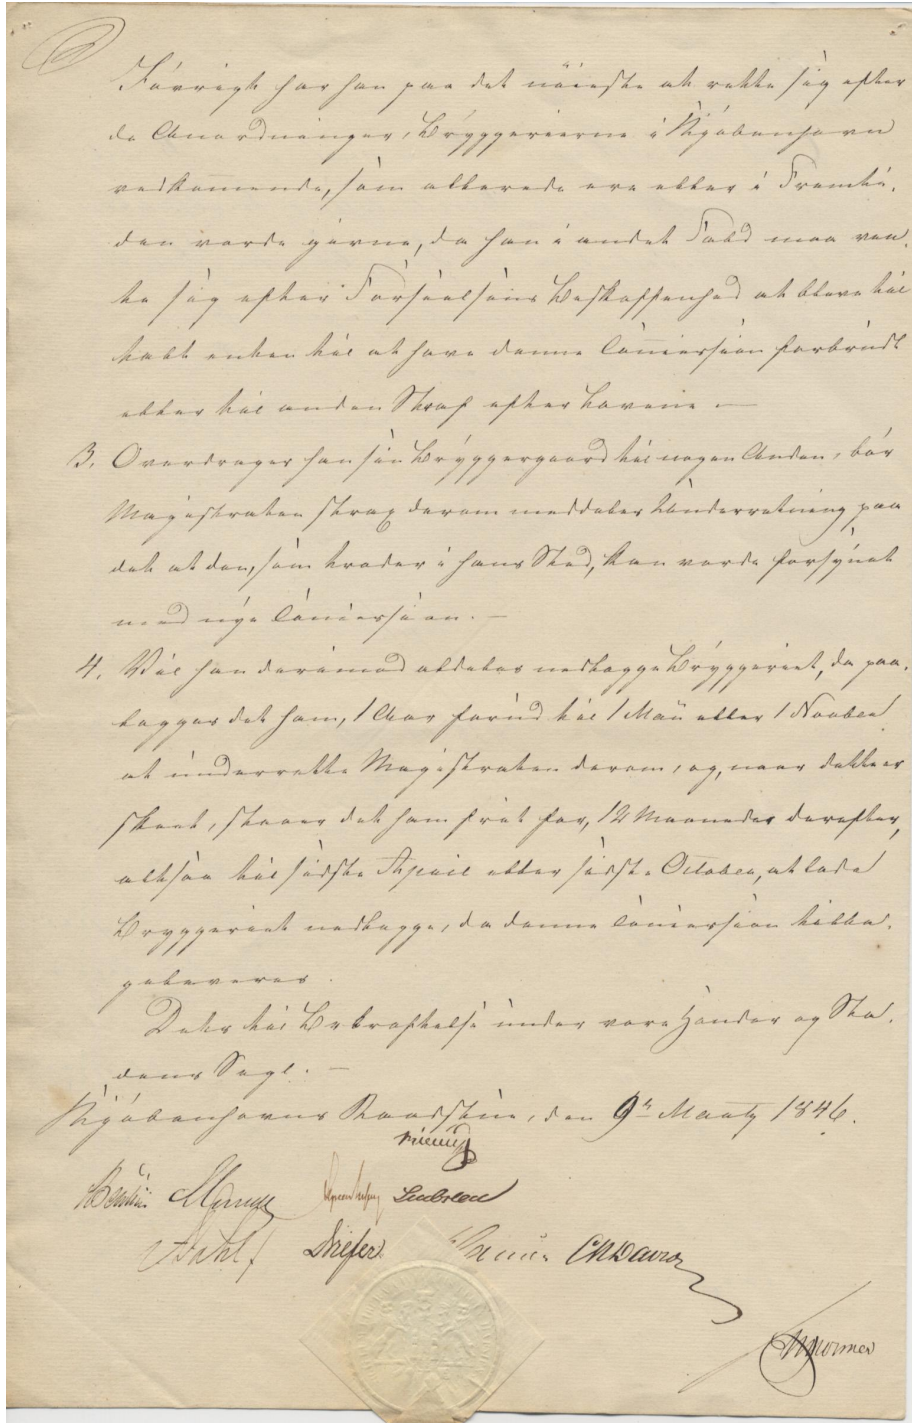 Iøvrigt har han paa det nøieste at rette sig efter
de Anordninger, Bryggerierne i Kjøbenhavn
vedkommende, som allerede ere eller i Fremti-
den vorde givne, da han i andet Fald maa ven-
te sig efter Forseelsens Beskaffenhed at blive til-
talt enten til at have denne Concession forbrudt
eller til anden Straf efter Lovene. —
3. Overdrager han sin Bryggergaard til nogen Anden, bør
Magistraten strax derom meddeles Underretning paa
det at den, som træder i hans Sted, kan vorde forsynet
med nye Concession. —
4. Vil han derimod aldeles nedlægge Bryggeriet, da paa-
lægges det ham, 1 Aar forud til 1 Mai eller 1 Novber
at underrette Magistraten derom, og, naar dette er
skeet, staaer det ham frit for, 12 Maaneder derefter,
altsaa til sidste April eller sidste October, at lade
Bryggeriet nedlægge, da denne Concession tilba-
geleveres.
Dets til Bekræftelse under vore Hænder og Sta-
dens Segl. —
Kjøbenhavns Raadstue, den 9de Marts 1846.